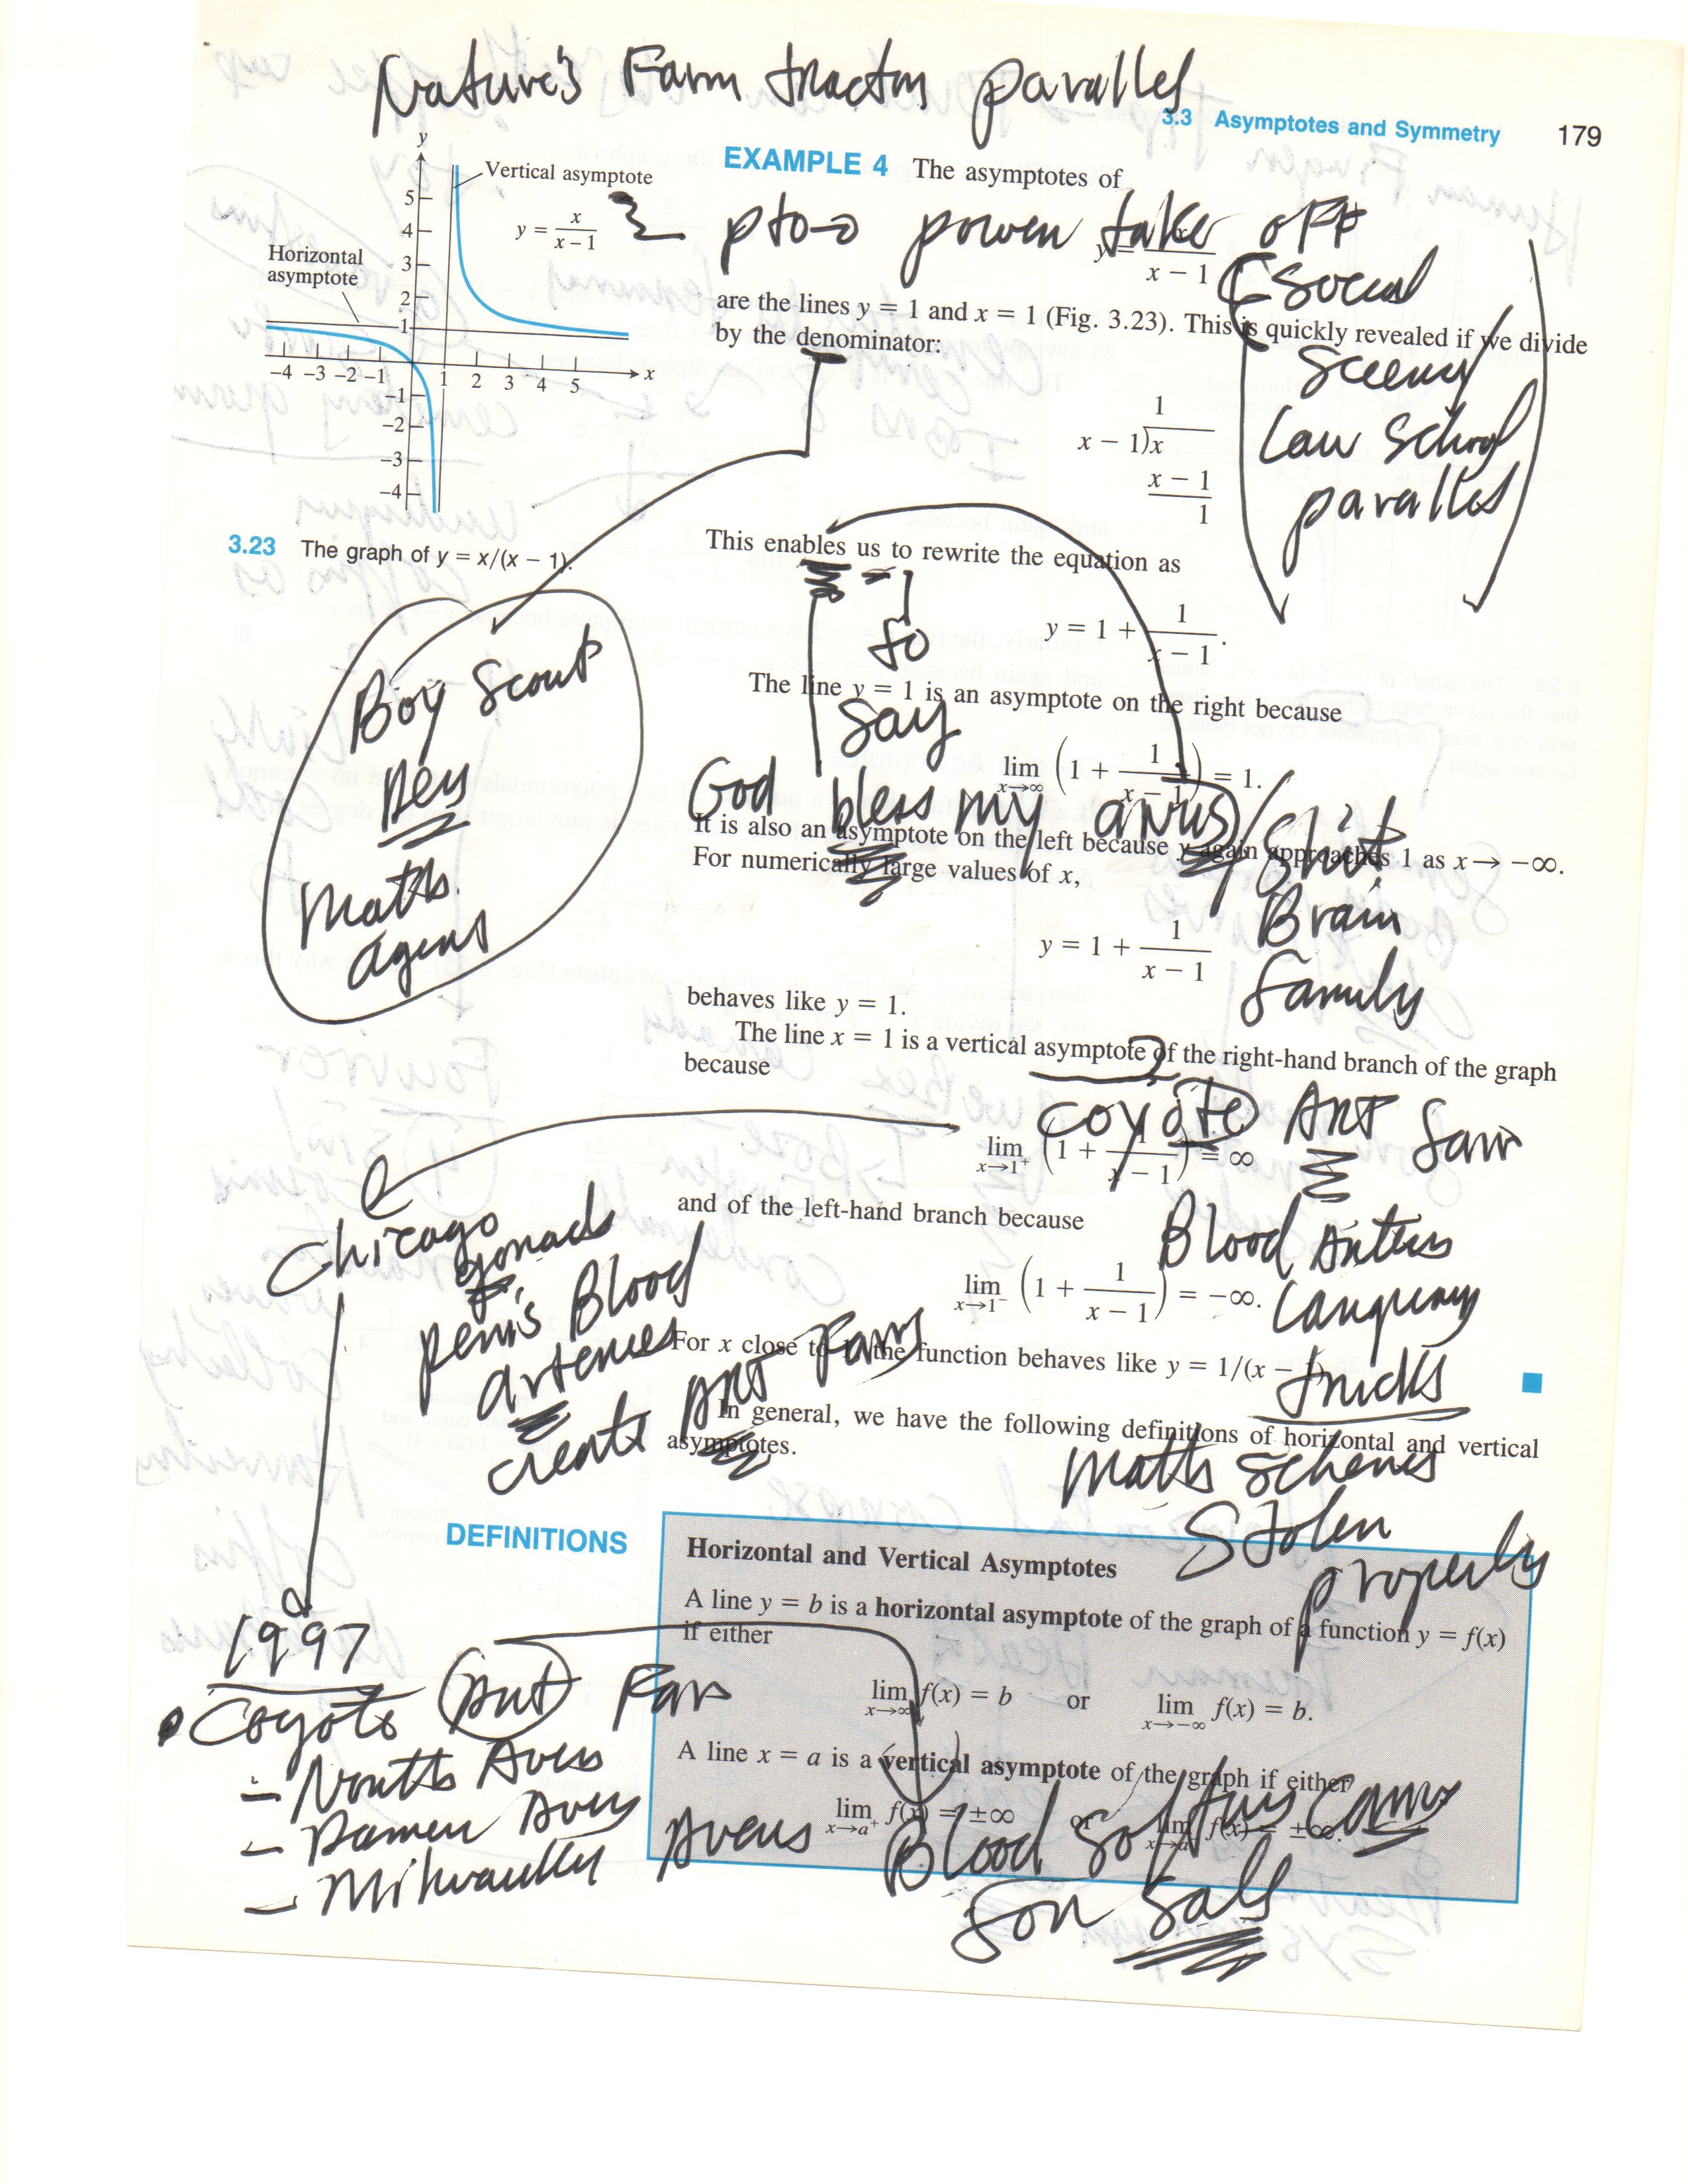 Nature's Farm tractor parallel
3.3 Asymptotes and Symmetry 179
y
Vertical asymptote
y = x/(x − 1)
Horizontal
asymptote
5
4
3
2
1
-4 -3 -2 -1 1 2 3 4 5 x
-1
-2
-3
-4
3.23 The graph of y = x/(x − 1).
EXAMPLE 4 The asymptotes of
pto→ power take off
y = x/(x − 1)
are the lines y = 1 and x = 1 (Fig. 3.23). This is quickly revealed if we divide
by the denominator:
social
Law School
parallel
1
x − 1)x
x − 1
1
This enables us to rewrite the equation as
so
say
y = 1 + 1/(x − 1).
The line y = 1 is an asymptote on the right because
lim x→∞ (1 + 1/(x − 1)) = 1.
God bless my anus/shit
Brain
family
Boy Scout
Maths
agent
It is also an asymptote on the left because y again approaches 1 as x → −∞.
For numerically large values of x,
y = 1 + 1/(x − 1)
behaves like y = 1.
The line x = 1 is a vertical asymptote of the right-hand branch of the graph
because
coyote ANT Farm
lim x→1⁺ (1 + 1/(x − 1)) = ∞
and of the left-hand branch because
Blood
lim x→1⁻ (1 + 1/(x − 1)) = −∞.
language
tricks
Maths schemes
Stolen
property
Chicago
gonads
penis Blood
arteries
create ANT Farms
For x close to 1, the function behaves like y = 1/(x − 1).
In general, we have the following definitions of horizontal and vertical
asymptotes.
DEFINITIONS
Horizontal and Vertical Asymptotes
A line y = b is a horizontal asymptote of the graph of a function y = f(x)
if either
lim x→∞ f(x) = b or lim x→−∞ f(x) = b.
A line x = a is a vertical asymptote of the graph if either
lim x→a⁺ f(x) = ±∞ or lim x→a⁻ f(x) = ±∞.
1997
Coyote ant Farm
- North Aves
- Damen Aves
- Milwaukee Avens
Blood
for Sale